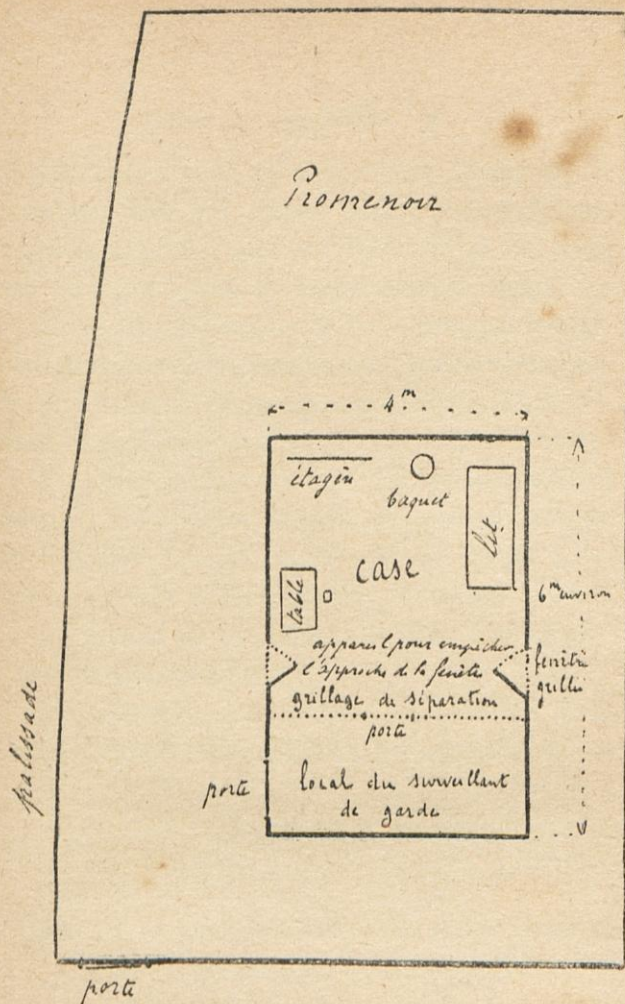 Promenoir
4 m
étagère
baquet
lit
case
table
6 m environ
appareil pour empêcher
l'approche de la fenêtre
fenêtre
grillée
grillage de séparation
porte
palissade
porte
local du surveillant
de garde
porte